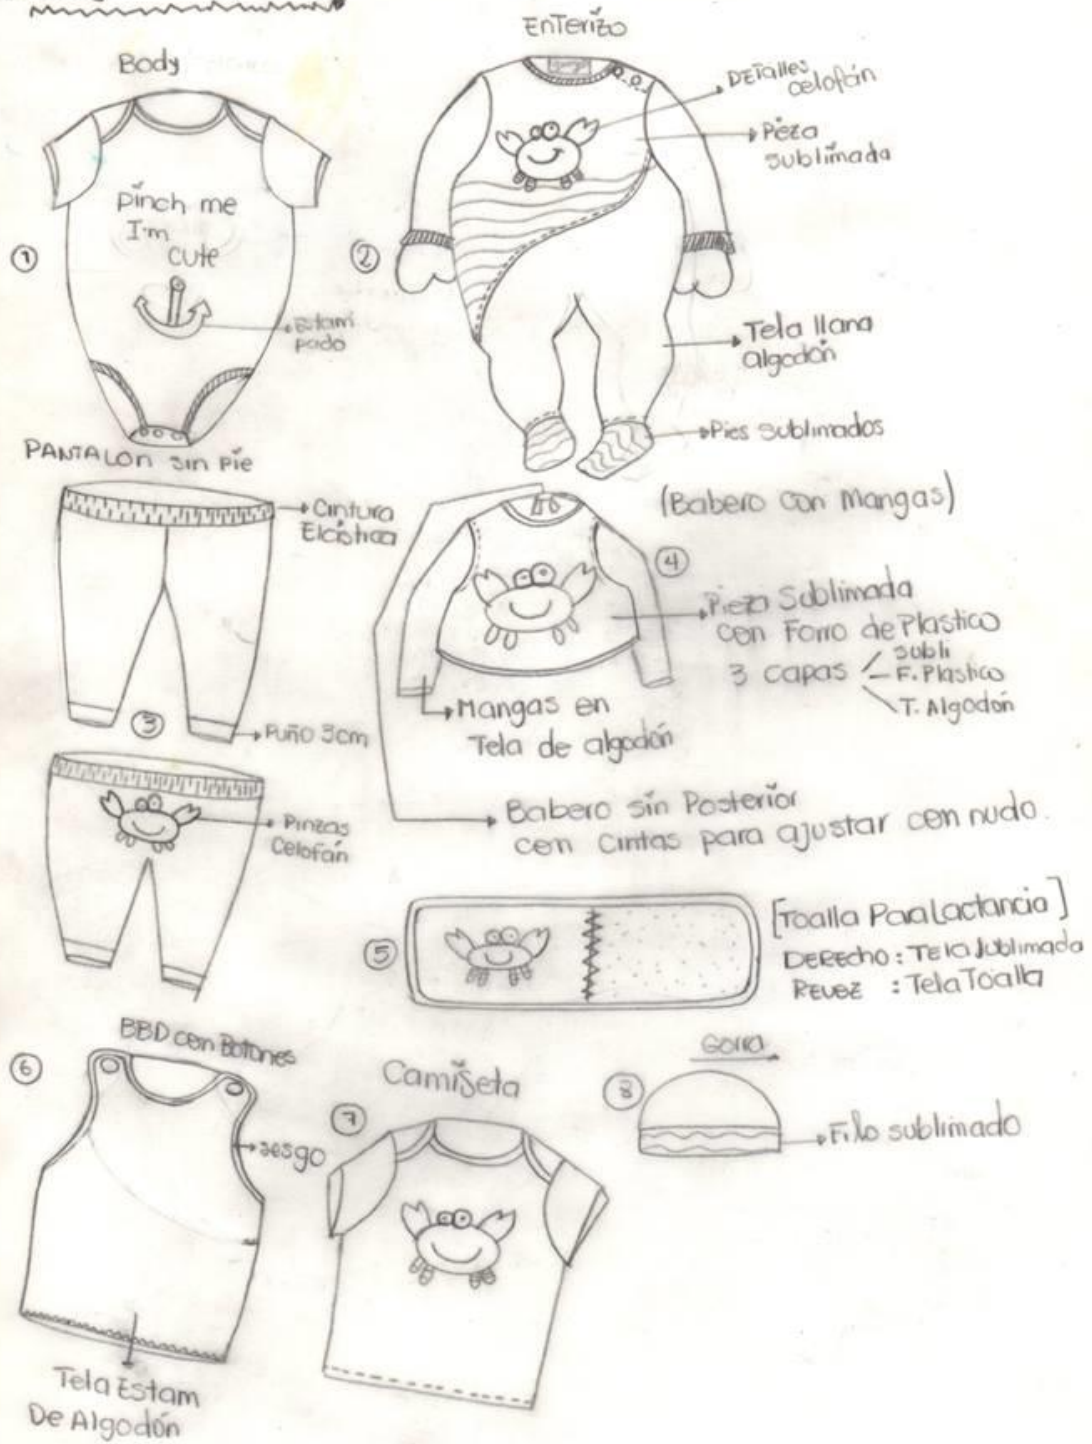 Body
Pinch me
I'm
cute
①
Estam
pado
Enterizo
DETalles
celofán
Pieza
sublimada
②
Tela llana
algodón
Pies sublimados
PANTALON sin pie
Cintura
Elástica
③
Puño 3cm
Pinzas
Celofán
(Babero con Mangas)
④
Pieza Sublimada
con Forro de Plastico
3 capas
subli
F. Plastico
T. Algodón
Mangas en
Tela de algodón
Babero sin Posterior
con Cintas para ajustar con nudo.
⑤
[Toalla Para Lactancia]
DERECHO : Tela Sublimada
REVEZ : Tela Toalla
⑥
BBD con Botones
sesgo
Tela Estam
De Algodón
Camiseta
⑦
Gorra
⑧
Filo sublimado